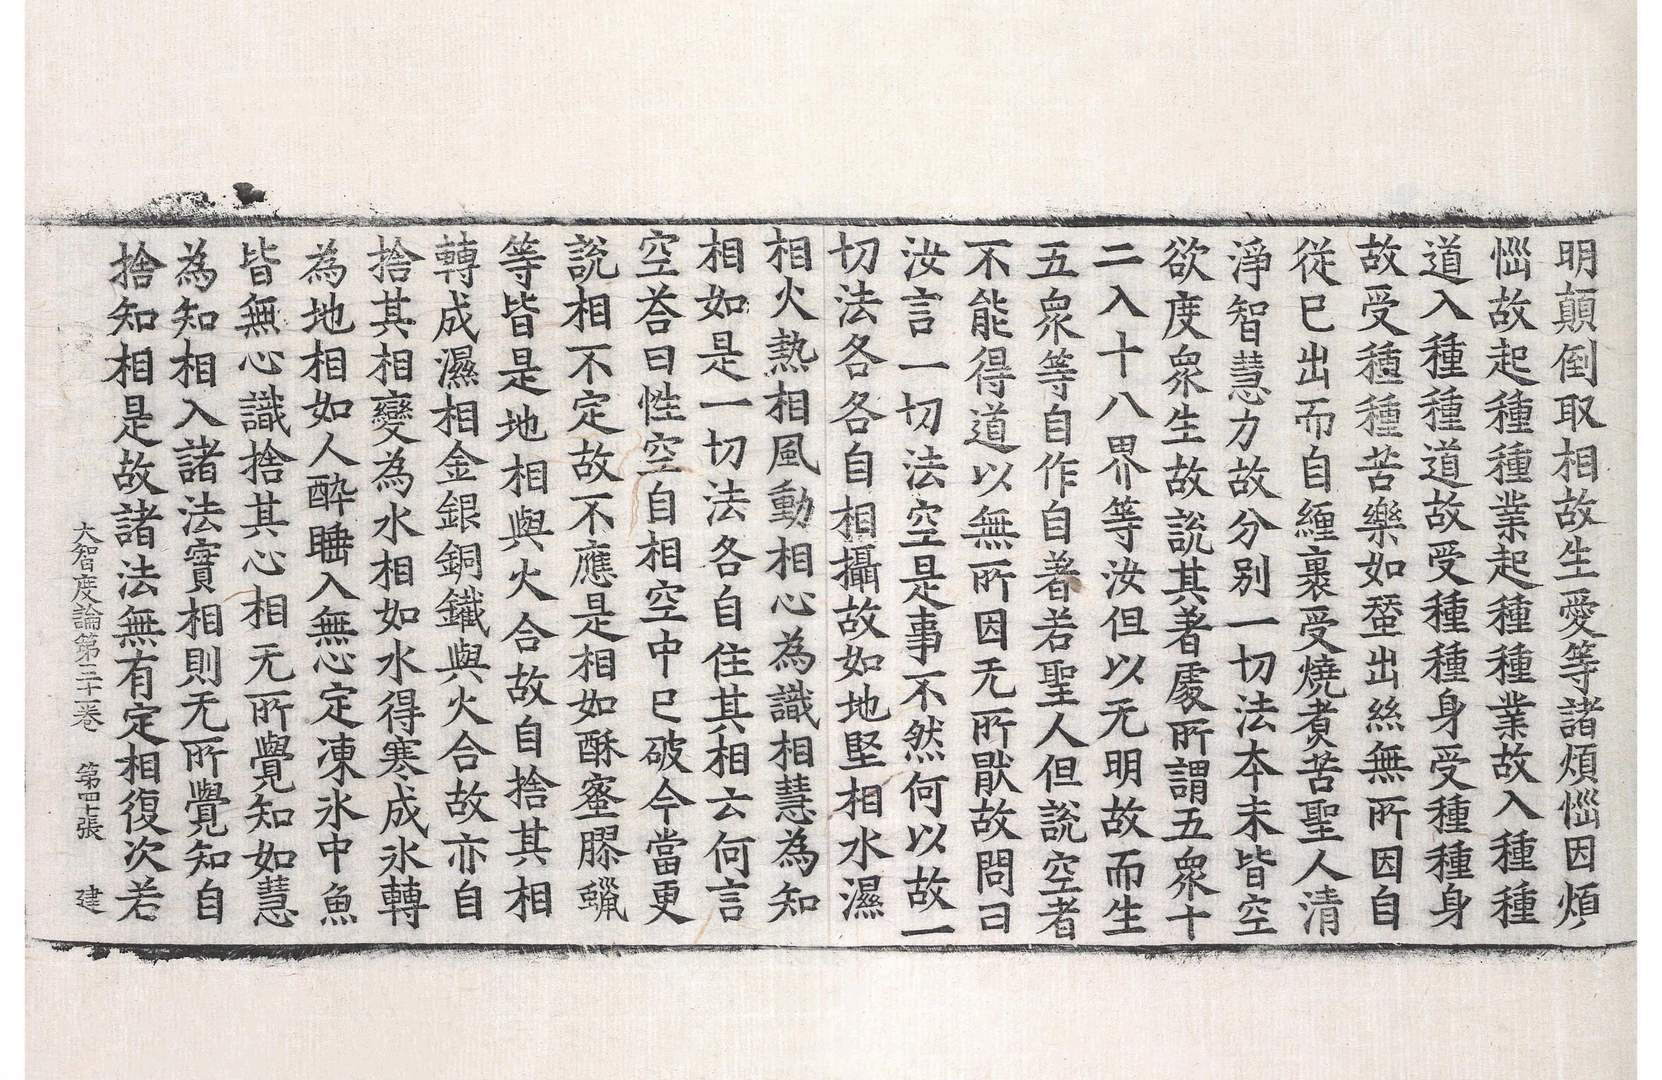 明顛倒取相故生愛等諸煩惱因煩
惱故起種種業起種種業故入種種
道入種種道故受種種身受種種身
故受種種苦樂如蚕出絲無所因自
從已出而自纏裹受燒煑苦聖人清
淨智慧力故分別一切法本末皆空
欲度衆生故說其著處所謂五衆十
二入十八界等汝但以无明故而生
五衆等自作自著若聖人但說空者
不能得道以無所因无所猒故問曰
汝言一切法空是事不然何以故一
切法各各自相攝故如地堅相水濕
相火熱相風動相心為識相慧為知
相如是一切法各自住其相云何言
空荅曰性空自相空中已破今當更
說相不定故不應是相如酥蜜膠蠟
等皆是地相與火合故自捨其相
轉成濕相金銀銅鐵與火合故亦自
捨其相變為水相如水得寒成氷轉
為地相如人醉睡入無心定凍氷中魚
皆無心識捨其心相无所覺知如慧
為知相入諸法實相則无所覺知自
捨知相是故諸法無有定相復次若
大智度論第三十一卷 第四十張 建